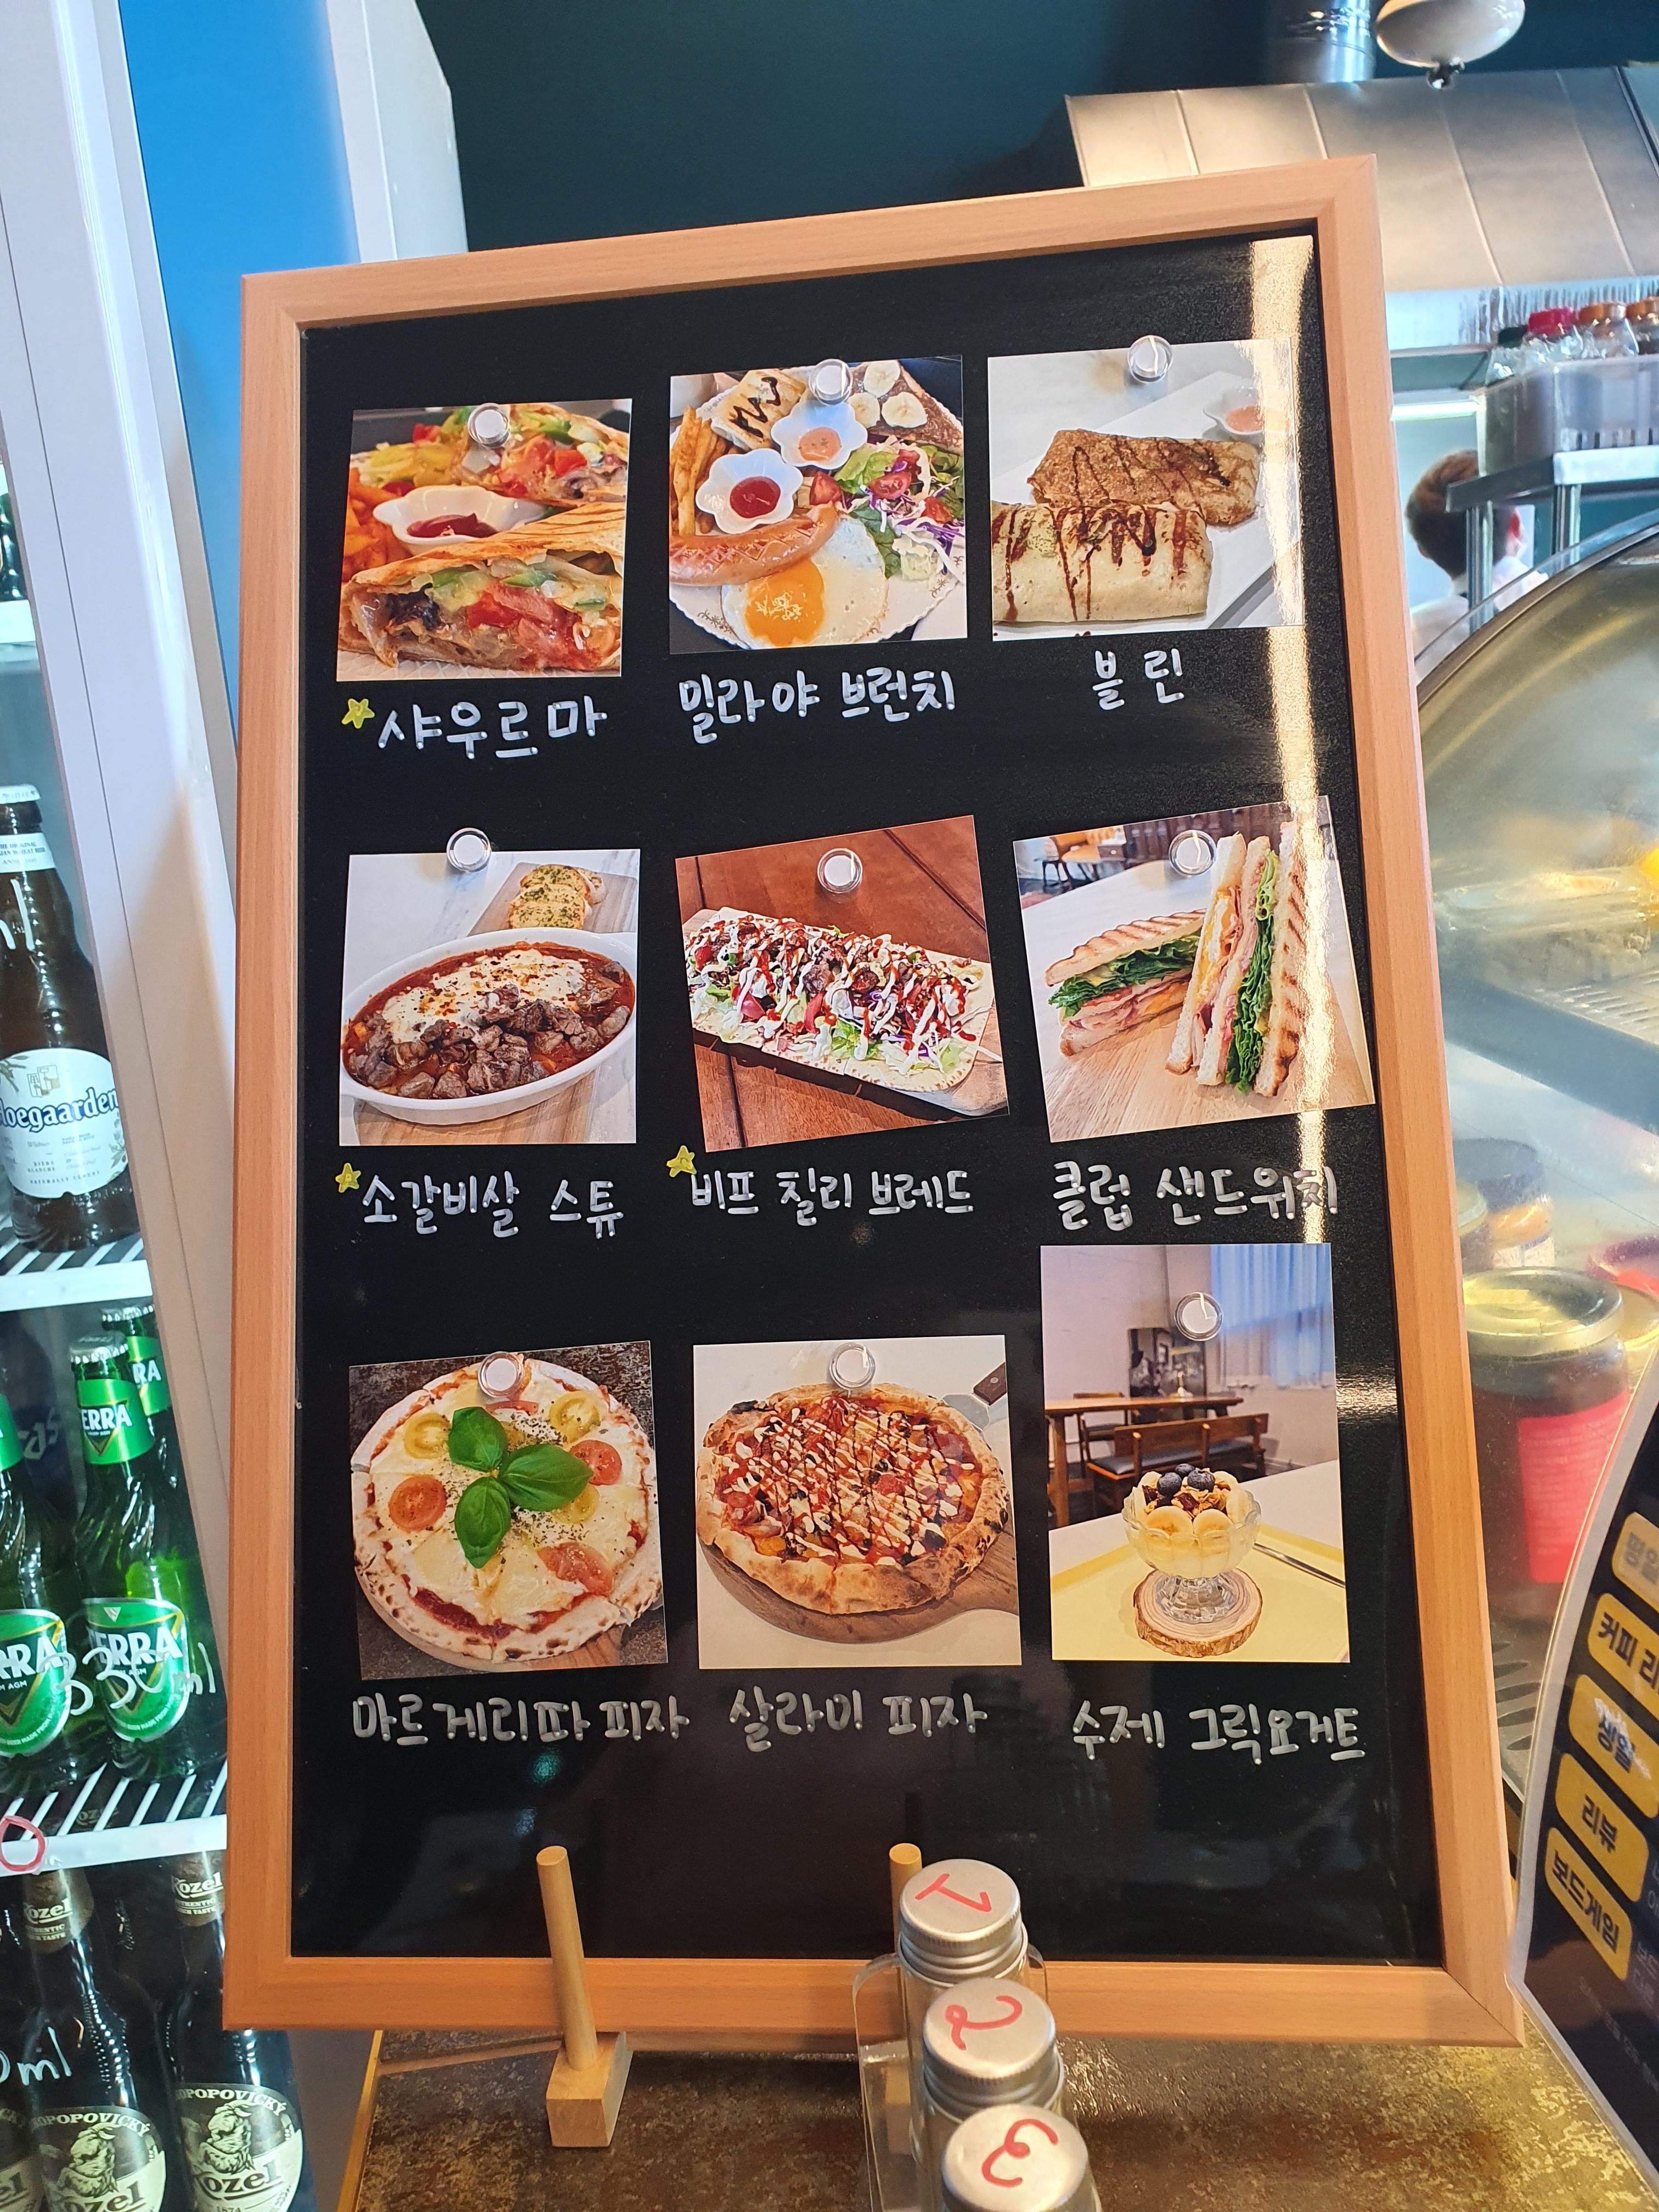 샤우르마
밀라야 브런치
블린
소갈비살 스튜
비프 칠리 브레드
클럽 샌드위치
마르게리따 피자
살라미 피자
수제 그릭요거트
1
2
3
Hoegaarden
TERRA
TERRA
330ml
Kozel
Kozel
ml
Kozel
1874
커피
리뷰
보드게임